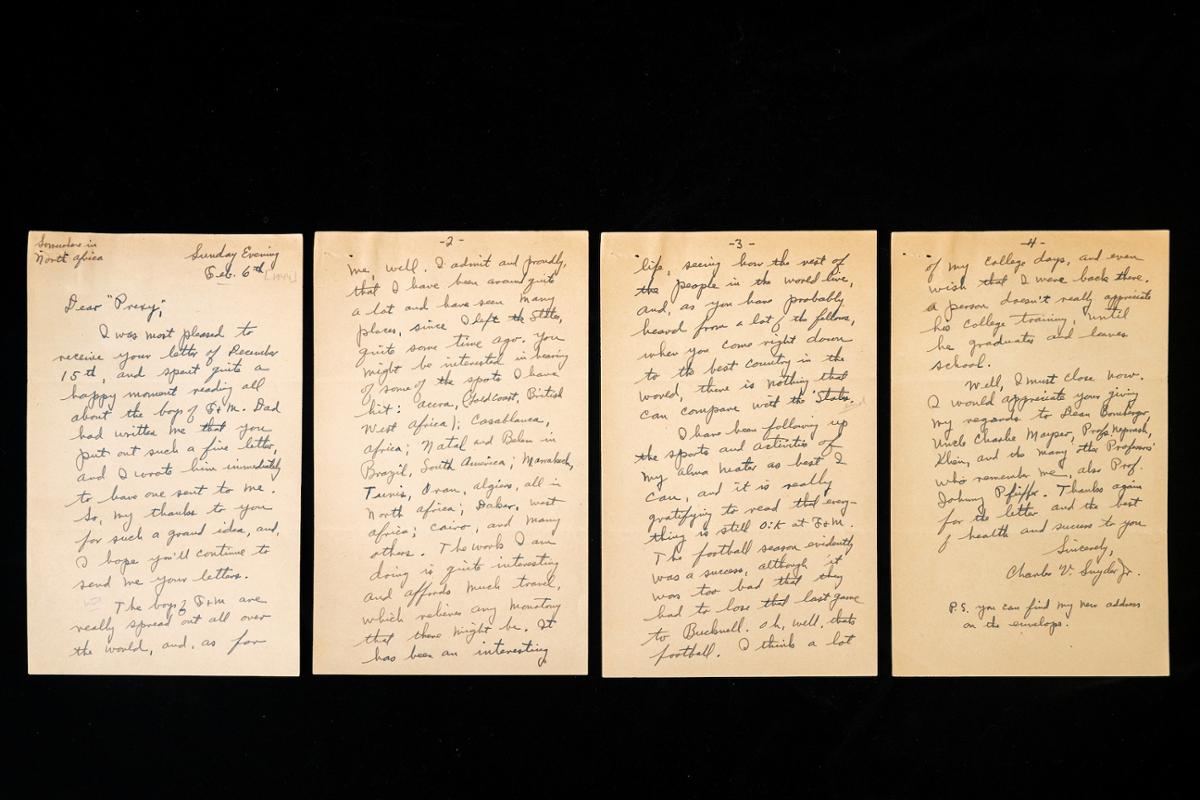 Somewhere in
North Africa
Sunday Evening
Feb. 6th
Dear "Prexy";
I was most pleased to
receive your letter of December
15th, and spent quite a
happy moment reading all
about the boys of F&M. Dad
had written me that you
put out such a fine letter,
and I wrote him immediately
to have one sent to me.
So, my thanks to you
for such a grand idea, and,
I hope you'll continue to
send me your letters.
The boys of F&M are
really spread out all over
the world, and, as for
-2-
me, well. I admit and proudly,
that I have been around quite
a lot and have seen many
places, since I left the States,
quite some time ago. You
might be interested in hearing
of some of the spots I have
hit: Accra, (Gold Coast, British
West Africa); Casablanca,
Africa; Natal and Belem in
Brazil, South America; Marrakech,
Tunis, Oran, Algiers, all in
North Africa; Dakar, West
Africa; Cairo, and many
others. The work I am
doing is quite interesting
and affords much travel,
which relieves any monotony
that there might be. It
has been an interesting
-3-
life, seeing how the rest of
the people in the world live,
and, as you have probably
heard from a lot of the fellows,
when you come right down
to the best country in the
world, there is nothing that
can compare with the States.
I have been following up
the sports and activities of
my alma mater as best I
can, and it is really
gratifying to read that every-
thing is still O.K at F&M.
The football season evidently
was a success, although it
was too bad that they
had to lose that last game
to Bucknell. Oh, well, thats
football. I think a lot
-4-
of my college days, and even
wish that I were back there.
A person doesn't really appreciate
his college training, until
he graduates and leaves
school.
Well, I must close now.
I would appreciate your giving
my regards to Dean Bomberger,
Uncle Charlie Mayser, Profs. Neprash,
Klein, and the many other Professors
who remember me, also Prof.
Johnny Pfiffer. Thanks again
for the letter and the best
of health and success to you
Sincerely,
Charles V. Snyder Jr.
P.S. you can find my new address
on the envelope.